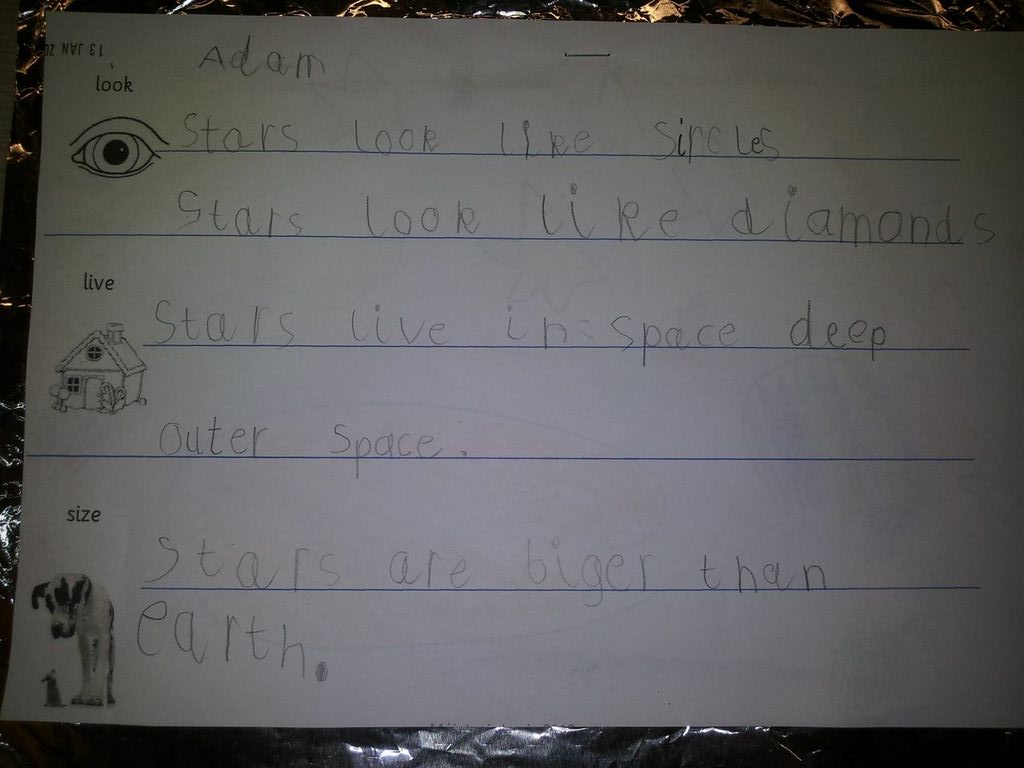 13 JAN
Adam
look
Stars look like Sircles
Stars look like diamonds
live
Stars live in space deep
outer space.
size
Stars are biger than
earth.